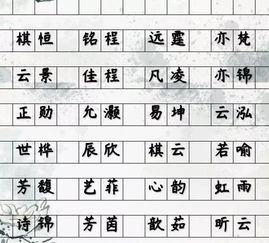 棋恒 铭程 远霆 亦梵
云景 佳程 凡凌 亦锦
正勋 允灏 易坤 云泓
世桦 辰欣 棋云 若喻
芳馥 艺菲 心韵 虹雨
诗锦 芳茵 歆茹 昕云